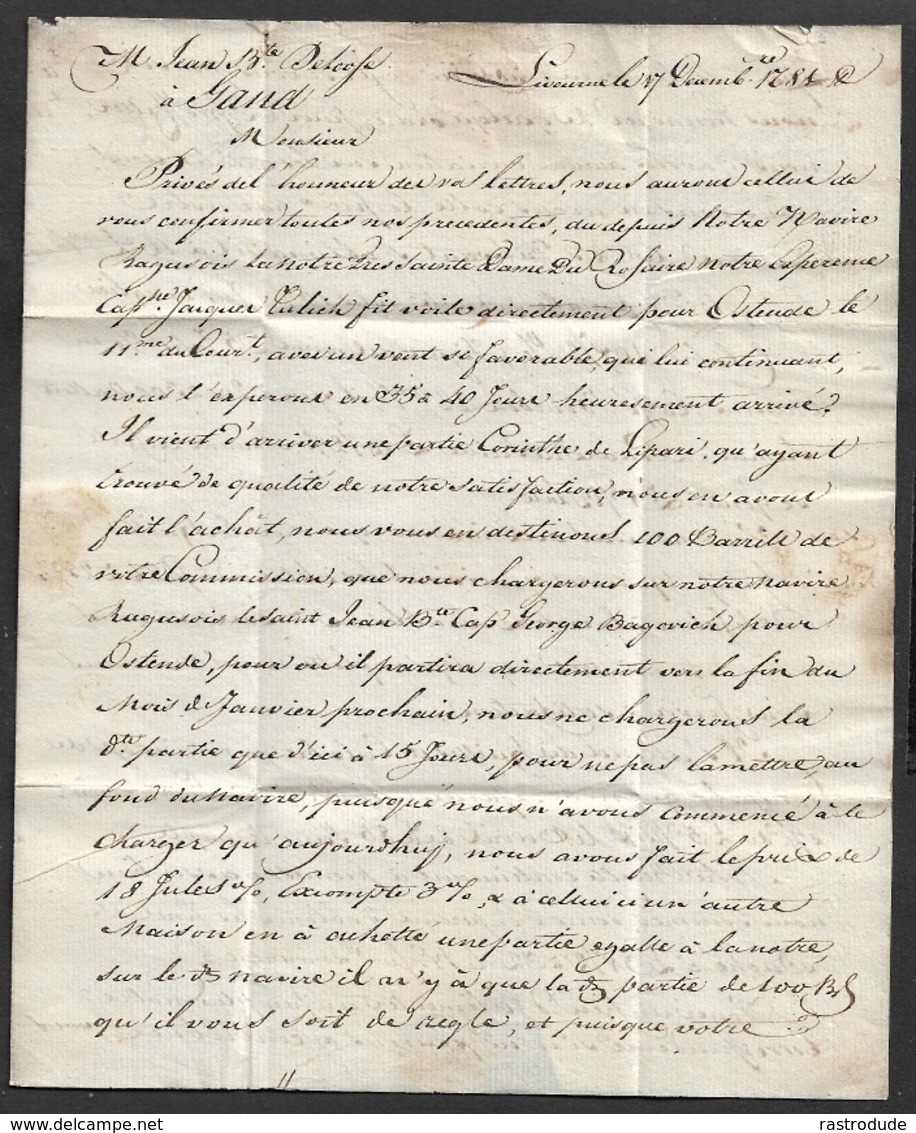 M Jean B.te Deloose Livourne le 17 Decemb.re 1781
à Gand
Monsieur
Privés del honneur des vos lettres, nous aurons cellui de
vous confirmer toutes nos precedentes, du depuis Notre Navire
Ragusois La Notre Tres Sainte Dame Du Rosaire notre
Cap.ne Jacques fit voile directement pour Ostende le
11.me du Cour.t, avec un vent si favorable, que lui continuant,
nous l'esperons en 35 à 40 Jours heuresement arrivé.
Il vient d'arriver une partie Corinthe de Lipari, qu'ayant
trouvé de qualité de notre satisfaction, nous en avons
fait l'achât, nous vous en destinons 100 Barrils de
votre Commission, que nous chargerons sur notre navire
Ragusois le Saint Jean B.te Cap George Bagovich pour
Ostende, pour ou il partira directement vers la fin du
Mois d Janvier prochain, nous ne chargerons la
d.te partie que d'ici à 15 Jours, pour ne pas la mettre, au
fond du navire, puisque nous n'avons commencé à le
charger qu'aujourdhuj, nous avons fait le prix de
18 Jules %, Excompte 3 %, & à cellui ci un'autre
Maison en à achetté une partie egalle à la notre,
sur le d navire il n'y à que la d partie de 100 B
qu'il vous soit de regle, et puisque votre
rastrodude